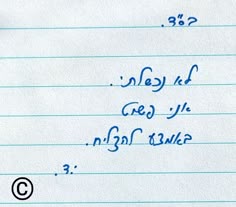 בס"ד.
לא נכשלתי.
אני פשוט
באמצע להצליח.
ד.י.
©